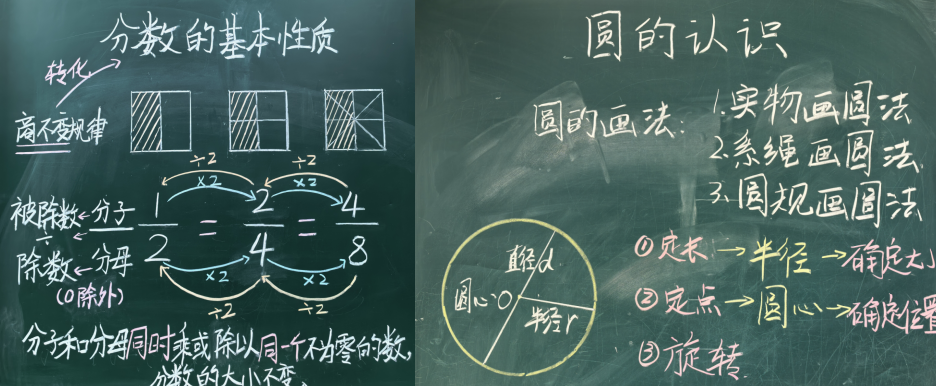 分数的基本性质
转化
商不变规律
÷2 ÷2
×2 ×2
被除数 ← 分子 1/2 = 2/4 = 4/8
÷
除数 ← 分母
(0除外)
×2 ×2
÷2 ÷2
分子和分母同时乘或除以同一个不为零的数,
分数的大小不变.
圆的认识
圆的画法:
1.实物画圆法
2.系绳画圆法
3.圆规画圆法
①定长→半径→确定大小
②定点→圆心→确定位置
③旋转
直径d
圆心O
半径r